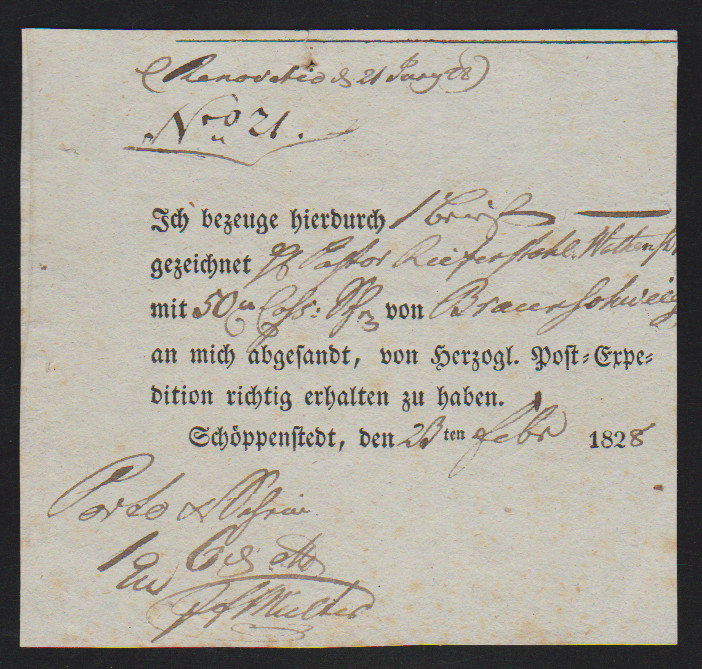 (Renovatio d 21 Juny 28)
Nro 21.
Ich bezeuge hierdurch 1 Brief
gezeichnet Pastor Riefenstahl
mit 50 von Braunschweig
an mich abgesandt, von Herzogl. Post-Expe-
dition richtig erhalten zu haben.
Schöppenstedt, den 23ten Febr 1828
Porto & Schein
1 6
Müller